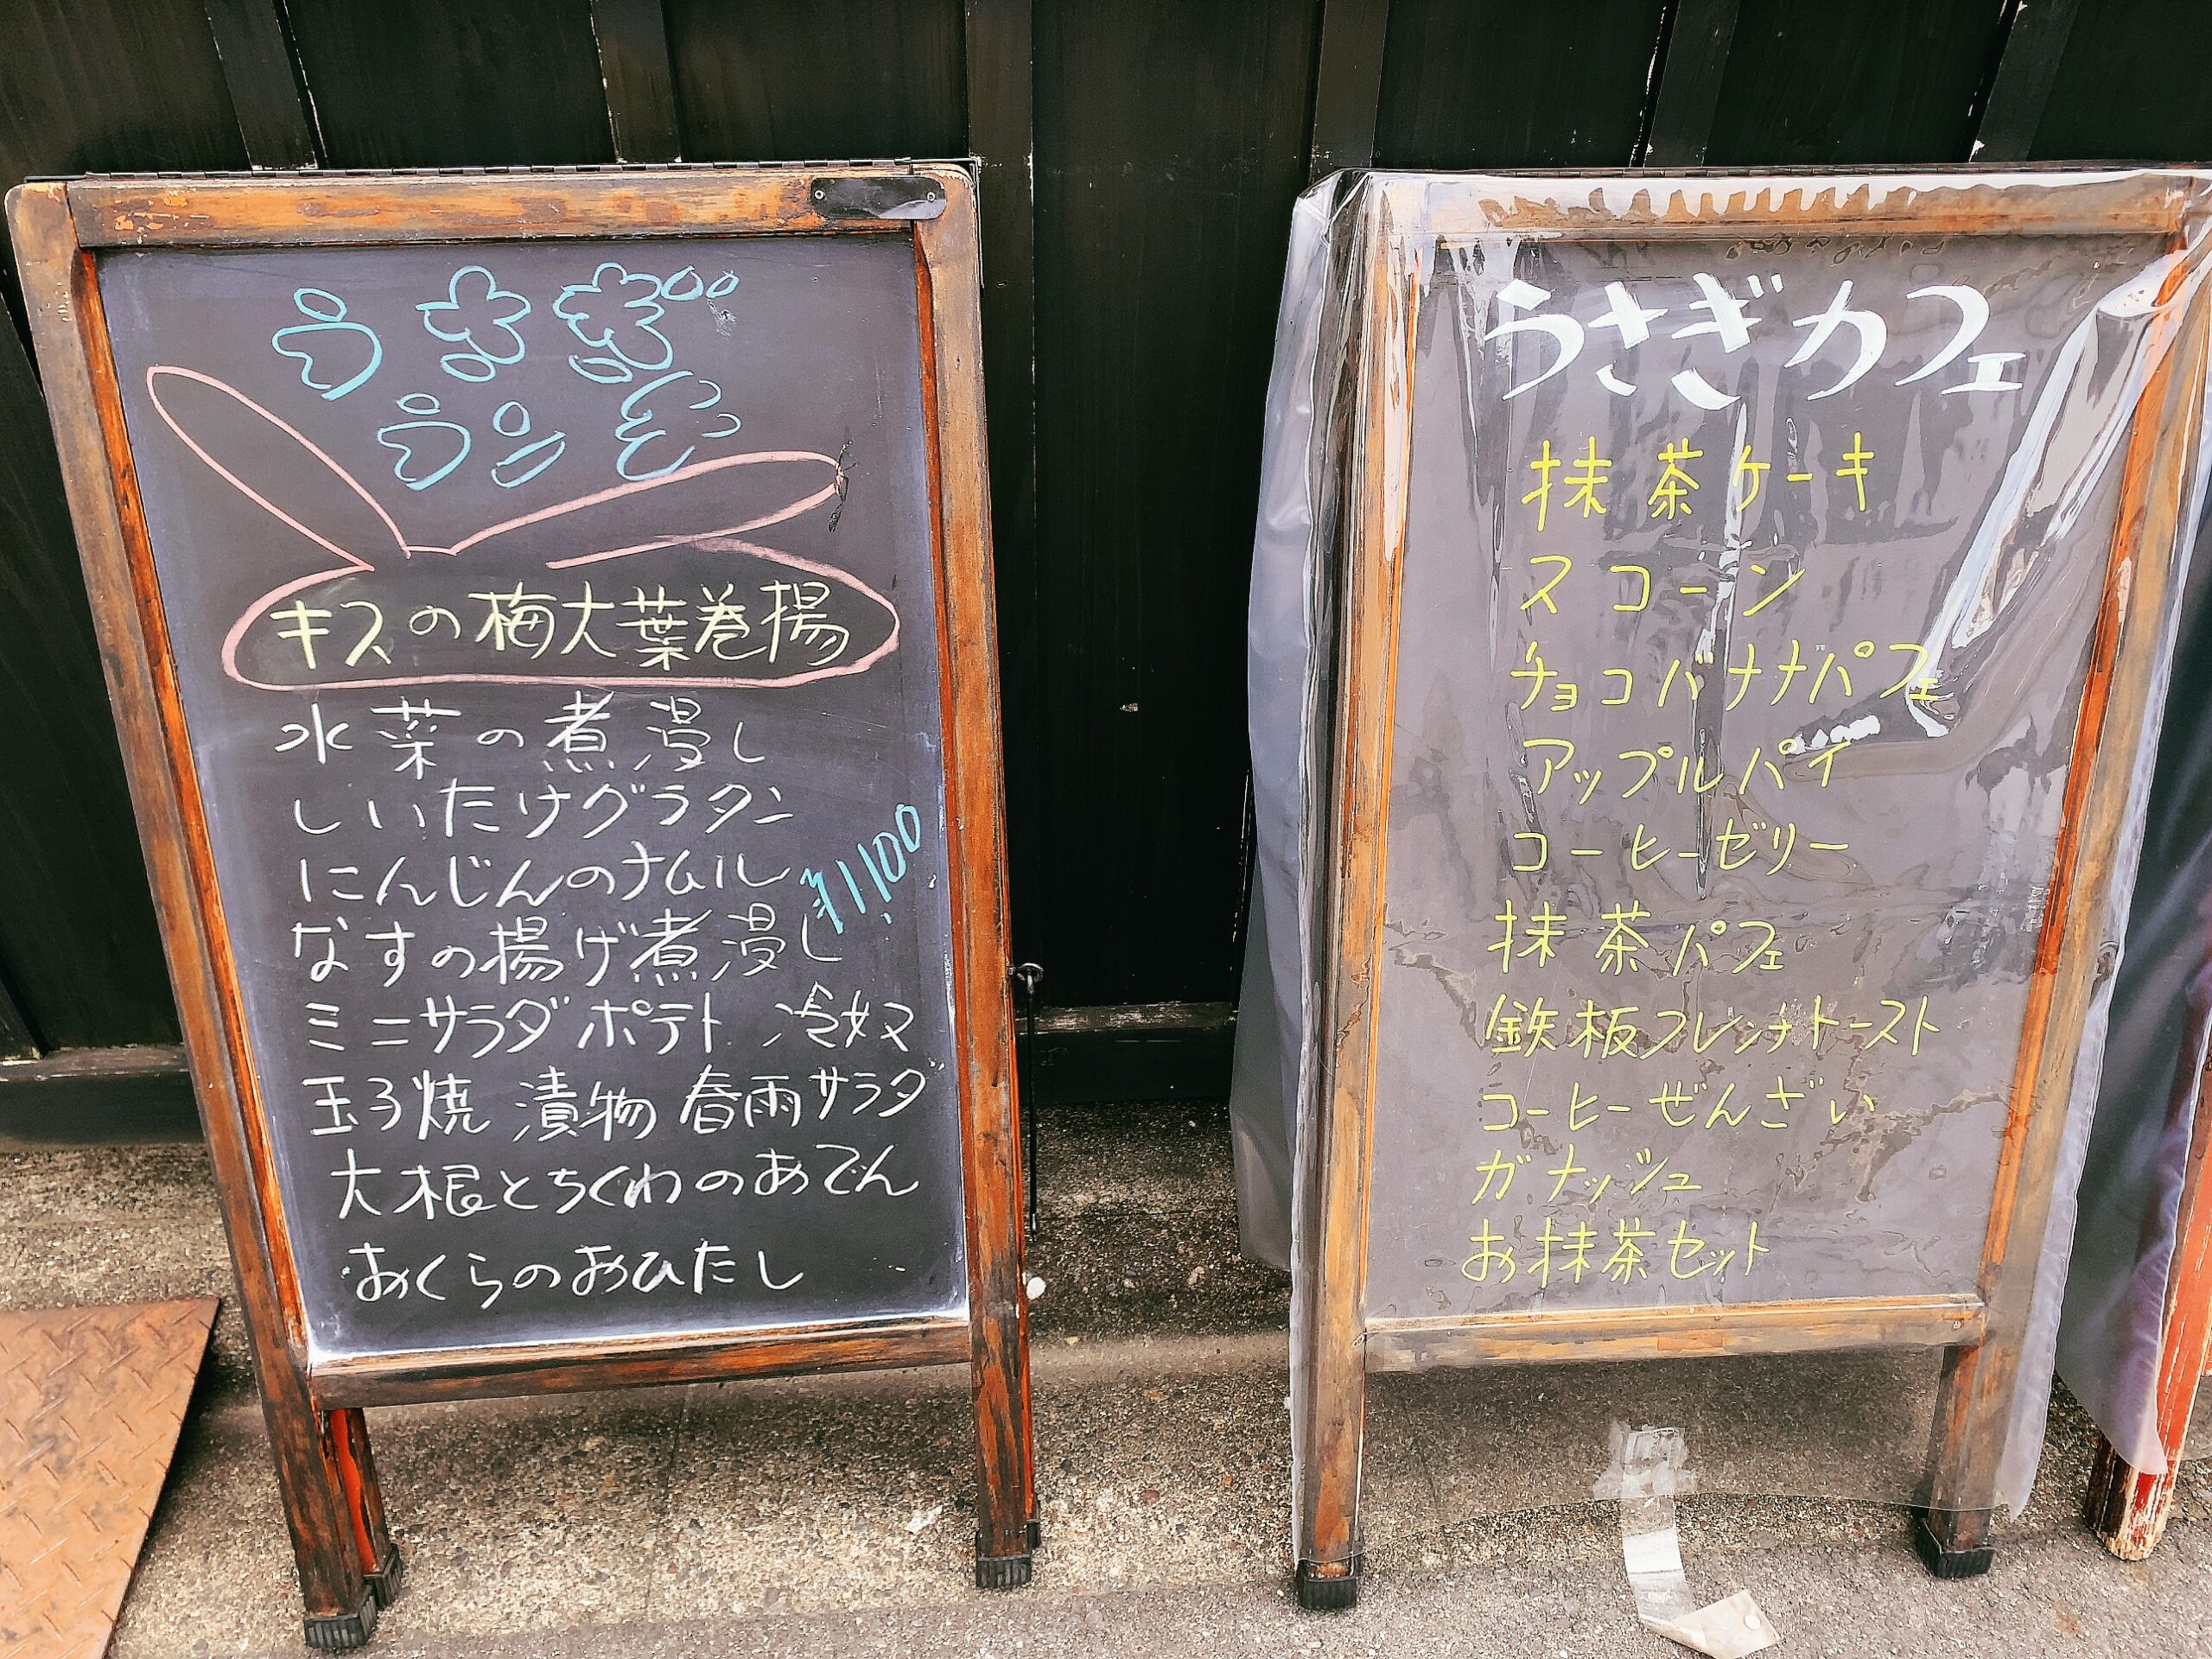 うさぎ
ランチ
キスの梅大葉巻揚
水菜の煮浸し
しいたけグラタン
にんじんのナムル
¥1,100
なすの揚げ煮浸し
ミニサラダ ポテト 冷奴
玉子焼 漬物 春雨サラダ
大根とちくわのおでん
おくらのおひたし
うさぎカフェ
抹茶ケーキ
スコーン
チョコバナナパフェ
アップルパイ
コーヒーゼリー
抹茶パフェ
鉄板フレンチトースト
コーヒーぜんざい
ガナッシュ
お抹茶セット